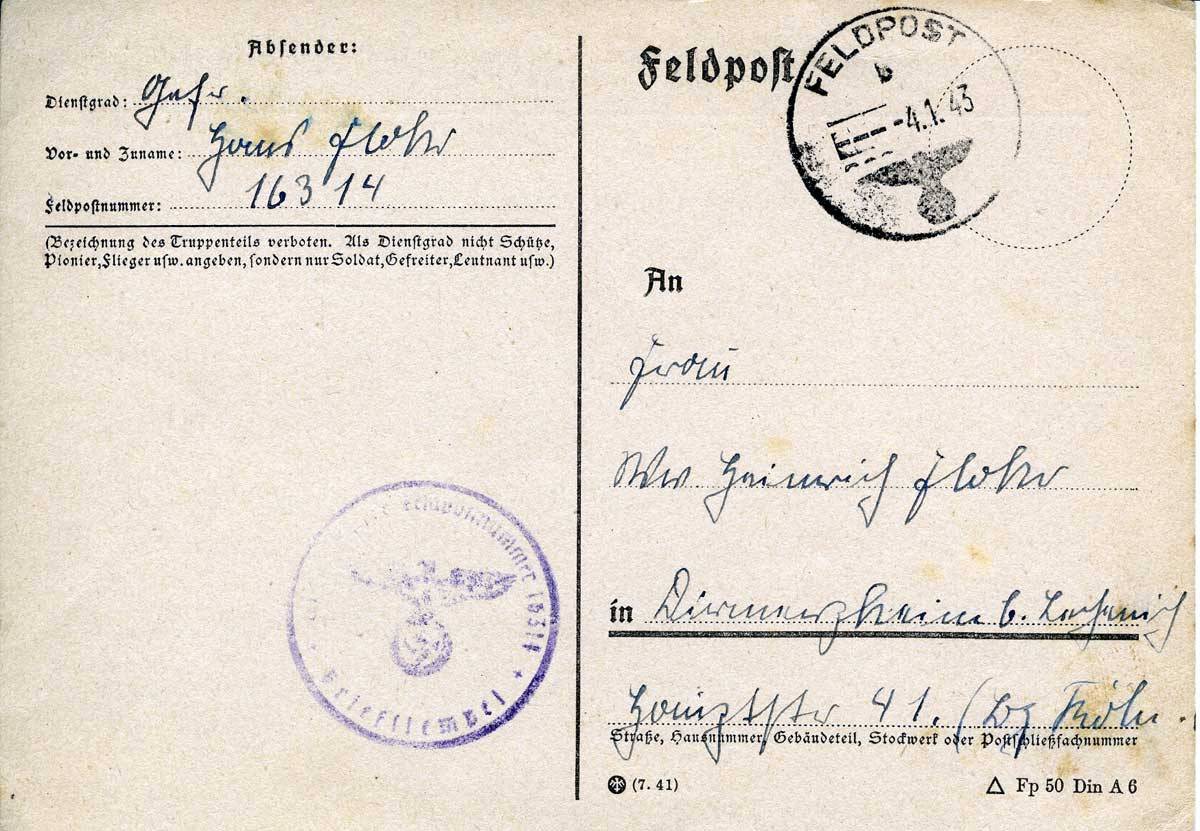 Absender:
Dienstgrad: Gefr.
Vor- und Zuname: Hans Floßr
Feldpostnummer: 16314
(Bezeichnung des Truppenteils verboten. Als Dienstgrad nicht Schütze,
Pionier, Flieger usw. angeben, sondern nur Soldat, Gefreiter, Leutnant usw.)
Feldpostnummer 16314
Briefstempel
Feldpost
FELDPOST
b
-4.1.43
An
Frau
Ww Heinrich
in Dirmerzheim b. Lechenich
Hauptstr 41. (Bz Köln.
Straße, Hausnummer, Gebäudeteil, Stockwerk oder Postschließfachnummer
(7. 41)
Fp 50 Din A 6